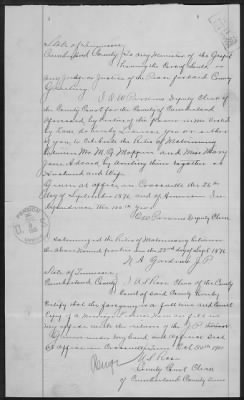 State of Tennessee
Cumberland County To any Minister of the Gospel
having the Care of Souls, or
any Judge or Justice of the Peace for said County
Greeting
I D W Parsons Deputy Clerk of
the County Court for the County of Cumberland
aforesaid, by virtue of the power in me vested
by Law, do hereby License you or either
of you to Celebrate the Rites of Matrimony
between Mr. M. G.
Jane by uniting them together as
Husband and Wife
Given at office in Crossville the 22
day of September 1876 and of American In-
dependence the 100th year
D W Parsons Deputy Clerk
Solemnized the Rites of Matrimony between
the above named parties on the 22nd day of Sept 1876
J P
State of Tennessee
Cumberland County I A S Rose Clerk of the County
Court of said County hereby
Certify that the foregoing is a full true and Correct
Copy of a Marriage License now on file in
my office with the return of the J P thereon
Given under my hand and official Seal
at office in Crossville this Oct
A S Rose
County Court Clerk
of Cumberland County Tenn